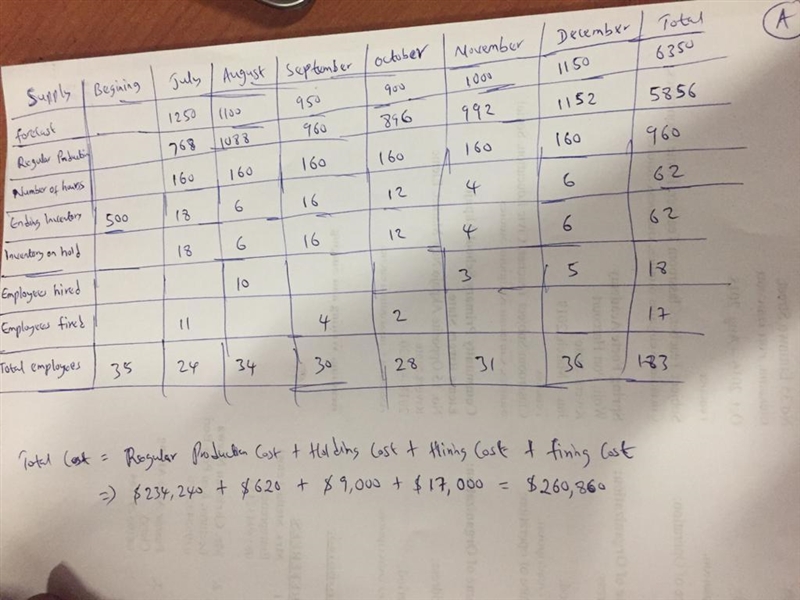 A
Supply Begining July August September October November December Total
forecast 1250 1100 950 900 1000 1150 6350
Regular Production 768 1088 960 896 992 1152 5856
Number of hours 160 160 160 160 160 160 960
Ending Inventory 500 18 6 16 12 4 6 62
Inventory on hold 18 6 16 12 4 6 62
Employees hired 10 3 5 18
Employees fired 11 4 2 17
Total employees 35 24 34 30 28 31 36 183
Total Cost = Regular Production Cost + Holding Cost + Hiring Cost + firing Cost
=> $234,240 + $620 + $9,000 + $17,000 = $260,860